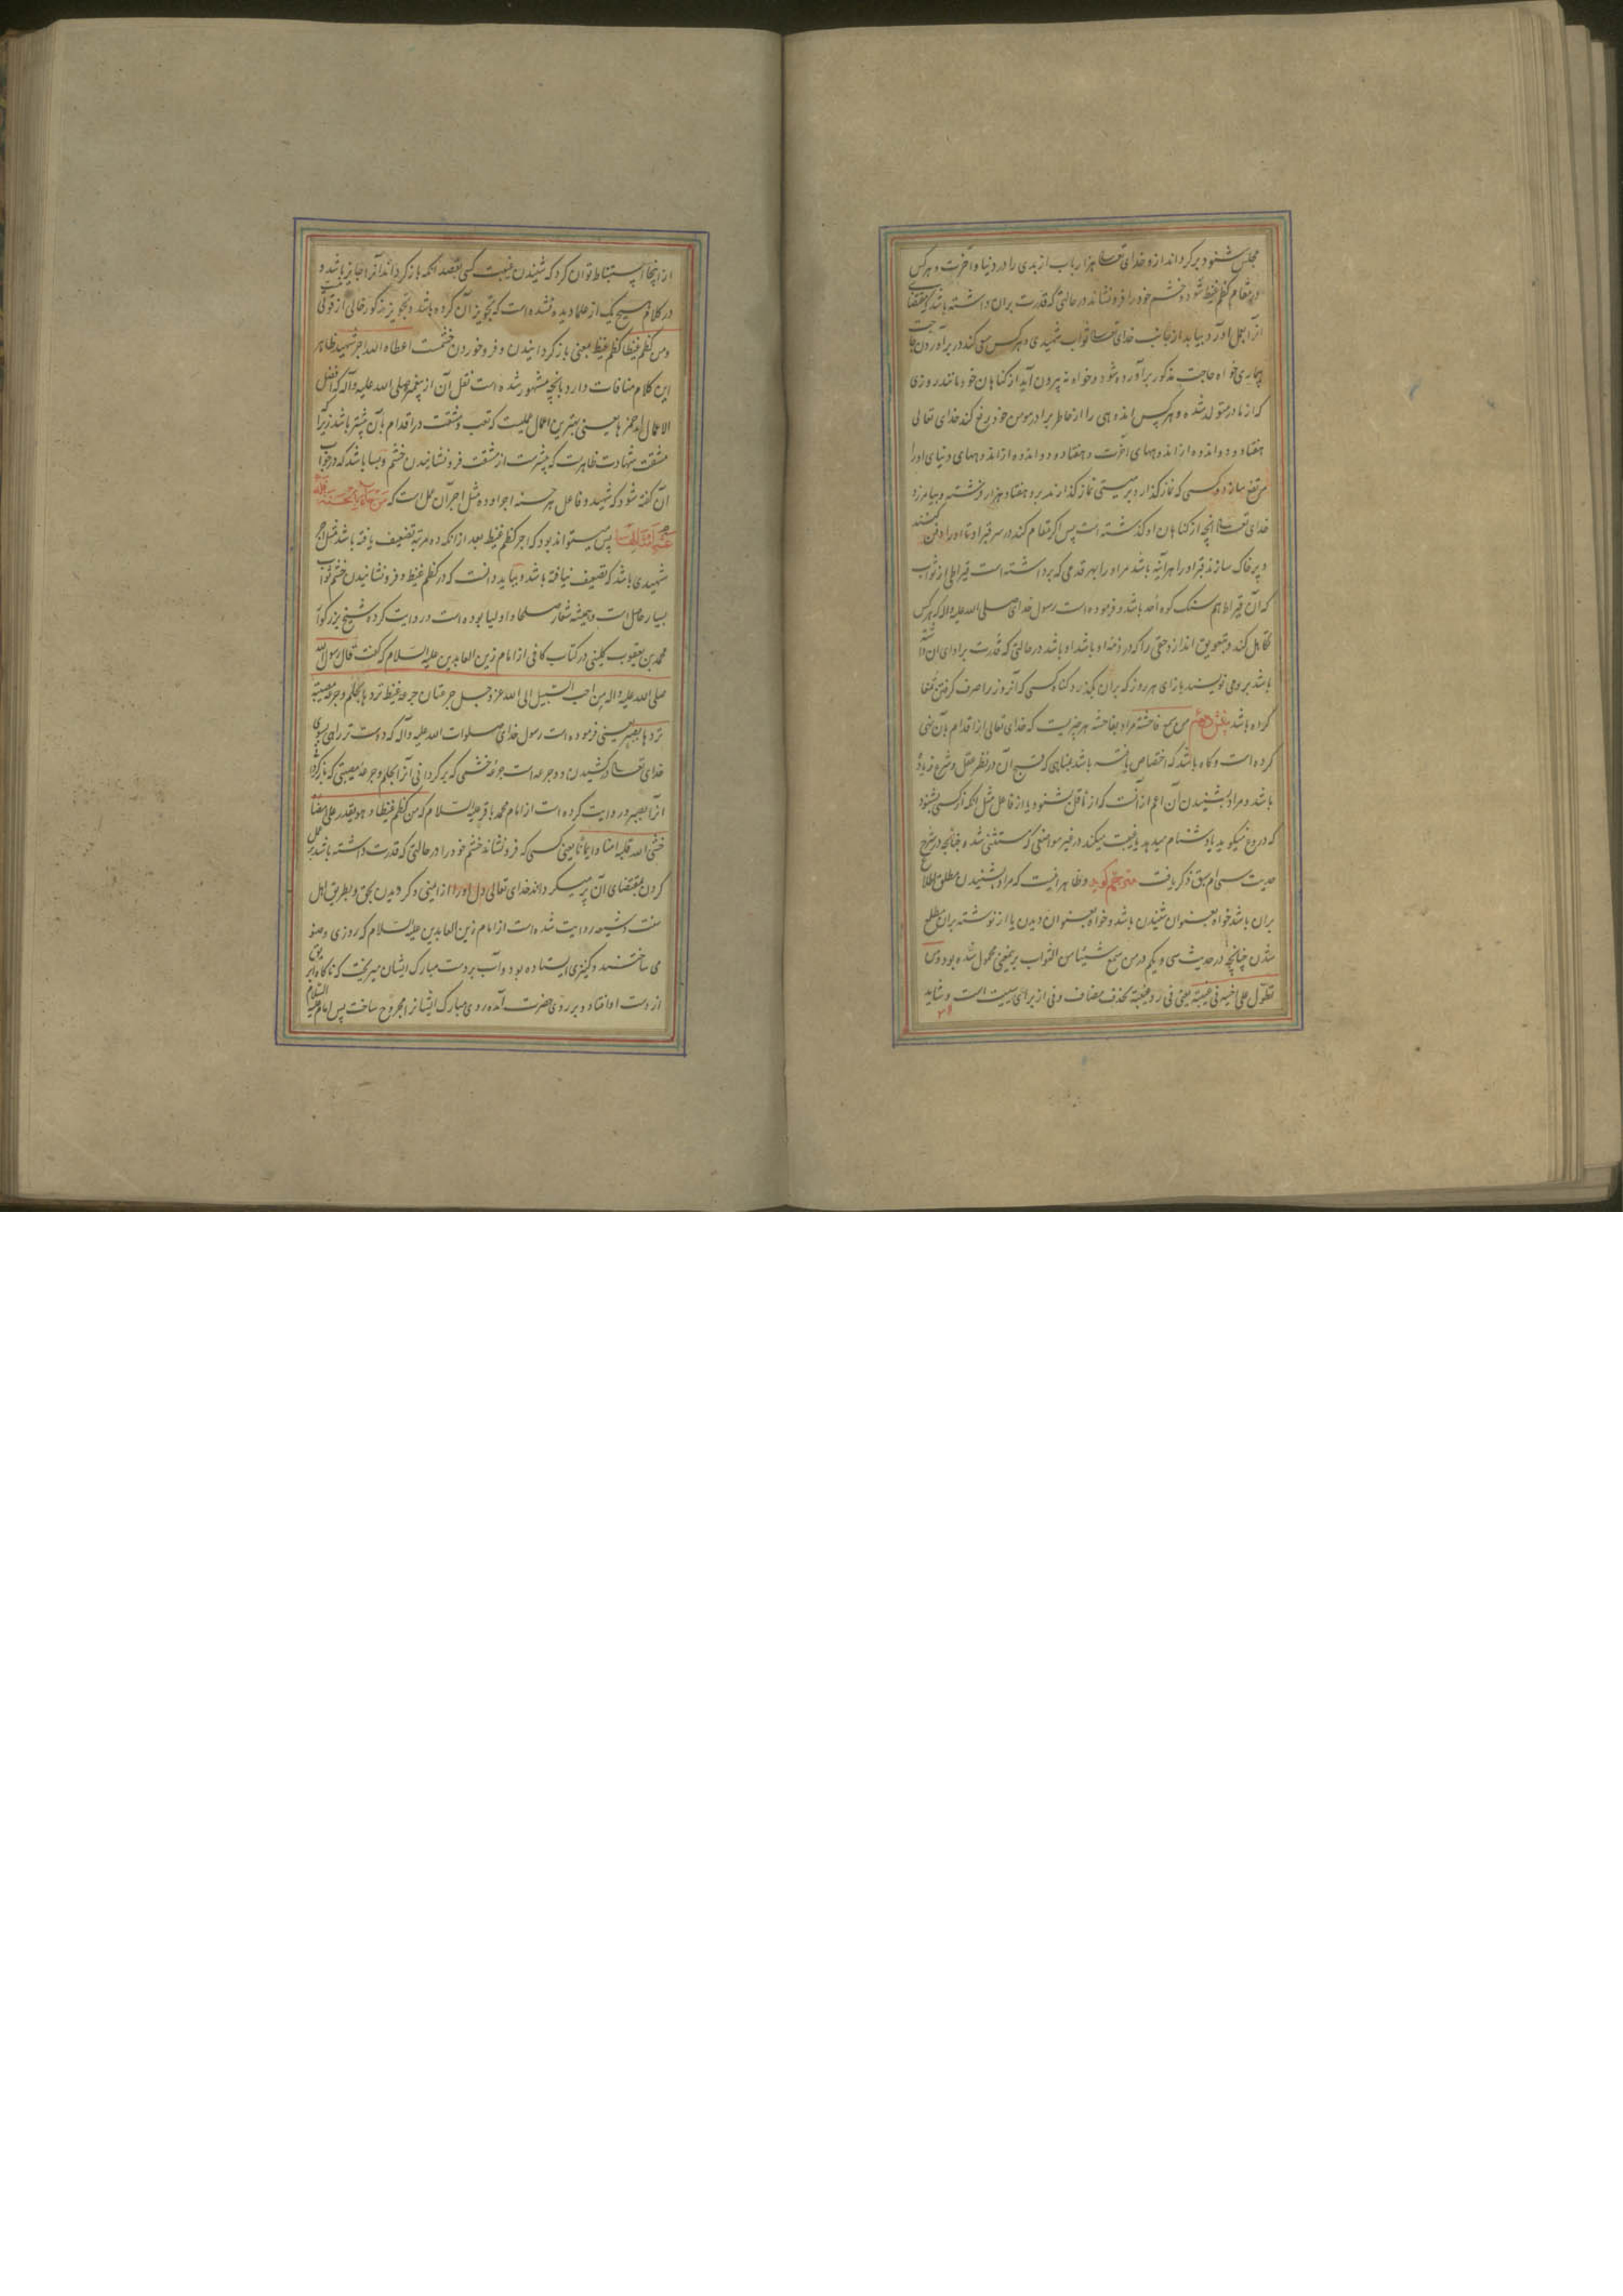 مجلس شنود برکرداند ازو خدای تعالی هزار باب از بدی را در دنیا و آخرت و هرکس
در مقام کظم غیظ شود و خشم خود را فرونشاند در حالتی که قدرت بران داشته باشد که مقتضای
آنرا بعمل آورد بیابد از جانب خدای تعالی ثواب شهیدی و هرکس سعی کند در برآوردن حاجت
بیماری خواه حاجت مذکور برآورده شود و خواه نه بیرون آید از کناهان خود مانند روزی
که از مادر متولد شده و هرکس اندوهی را از خاطر برادر مومن خود رفع کند خدای تعالی
هفتاد و دو اندوه از اندوههای آخرت و هفتاد و دو اندوه از اندوههای دنیای اورا
مرتفع سازد و کسی که نماز کذارد بر میتی نماز کذارند برو هفتاد هزار فرشته و بیامرزد
خدای تعالی آنچه از کناهان او کذشته است پس اکر مقام کند در سر قبر او تا اورا دفن کنند
و پر خاک سازند قبر او را هرآینه باشد مر او را بهر قدمی که برداشته است قیراطی از ثواب
که آن قیراط هم سنک کوه احد باشد و فرموده است رسول خدای صلی الله علیه واله که هرکس
تکاهل کند و بتعویق اندازد حقی را که در ذمه او باشد در حالتی که قدرت بر ادای ان داشته
باشد بر وی نویسند بازای هر روز که بران بکذرد کناه کسی که آنروز را صرف کرفتن
کرده باشد من سمع فاحشة مراد بفاحشه هر چیزیست که خدای تعالی از اقدام بآن نهی
کرده است و کاه باشد که اختصاص یافته باشد بمناهی که قبح آن در نظر عقل و شرع زیاده
باشد و مراد بشنیدن آن اعم از آنست که از ناقل بشنود یا از فاعل مثل آنکه از کسی بشنود
که دروغ میکوید یا دشنام میدهد یا غیبت میکند در غیر مواضعی که مستثنی شده چنانچه در شرح
حدیث سی ام سبق ذکر یافت مترجم کوید و ظاهر انیست که مراد بشنیدن مطلق اطلاع
بران باشد خواه بعنوان شنیدن باشد و خواه بعنوان دیدن یا از نوشته بران مطلع
شدن چنانچه در حدیث سی و یکم در من سمع شیئا من الثواب بر یمعنی محمول شده بود و من
تطول علی اخیه فی غیبة یعنی فی رد غیبة بحذف مضاف و فی از برای سببیت است و شاید
از اینجا استنباط توان کرد که شنیدن غیبت کسی بقصد آنکه باز کرداند آنرا جایز باشد و
در کلام هیچ یک از علما دیده نشده است که تجویز آن کرده باشد و تجویز مذکور خالی از قوتی نیست
ومن کظم غیظا کظم غیظ بمعنی باز کردانیدن و فروخوردن خشمست اعطاه الله اجر شهید ظاهر
این کلام منافات دارد بانچه مشهور شده است نقل آن از پیغمبر صلی الله علیه وآله که افضل
الاعمال احمزها یعنی بهترین اعمال عملیست که تعب و مشقت در اقدام بآن بیشتر باشد زیرا که
مشقت شهادت ظاهرست که بیشترست از مشقت فرونشانیدن خشم و بسا باشد که در جواب
آن کفته شود که شهید و فاعل هر حسنه اجر او ده مثل اجر آن عمل است که من جاء بالحسنة فله
عشر امثالها پس میتواند بود که اجر کظم غیظ بعد از انکه ده مرتبه تضعیف یافته باشد مثل اجر
شهیدی باشد که تضعیف نیافته باشد و بباید دانست که در کظم غیظ و فرونشانیدن خشم ثواب
بسیار حاصل است و همیشه شعار صلحا و اولیا بوده است و روایت کرده شیخ بزرکوار
محمد بن یعقوب کلینی در کتاب کافی از امام زین العابدین علیه السلام که کفت قال رسول الله
صلی الله علیه واله من احب السبیل الی الله عز وجل جرعتان جرعة غیظ تردها بحلم وجرعة مصیبة
تردها بصبر یعنی فرموده است رسول خدای صلوات الله علیه وآله که دوست تر راهی بسوی
خدای تعالی درکشیدن دو جرعه است جرعه خشمی که برکردانی آنرا بحلم و جرعه مصیبتی که باز کردانی
آنرا بصبر و روایت کرده است از امام محمد باقر علیه السلام که من کظم غیظا وهو یقدر علی امضائه
حشی الله قلبه امنا وایمانا یعنی کسی که فرونشاند خشم خود را در حالتی که قدرت داشته باشد بر عمل
کردن بمقتضای آن پر میکرداند خدای تعالی دل اورا از ایمنی و کرویدن بحق و بطریق اهل
سنت و شیعه روایت شده است از امام زین العابدین علیه السلام که روزی وضو
می ساختند و کنیزی ایستاده بود و آب بر دست مبارک ایشان میریخت که ناکاه ابریق
از دست او افتاد و بر روی حضرت آمده روی مبارک ایشانرا مجروح ساخت پس امام علیه السلام